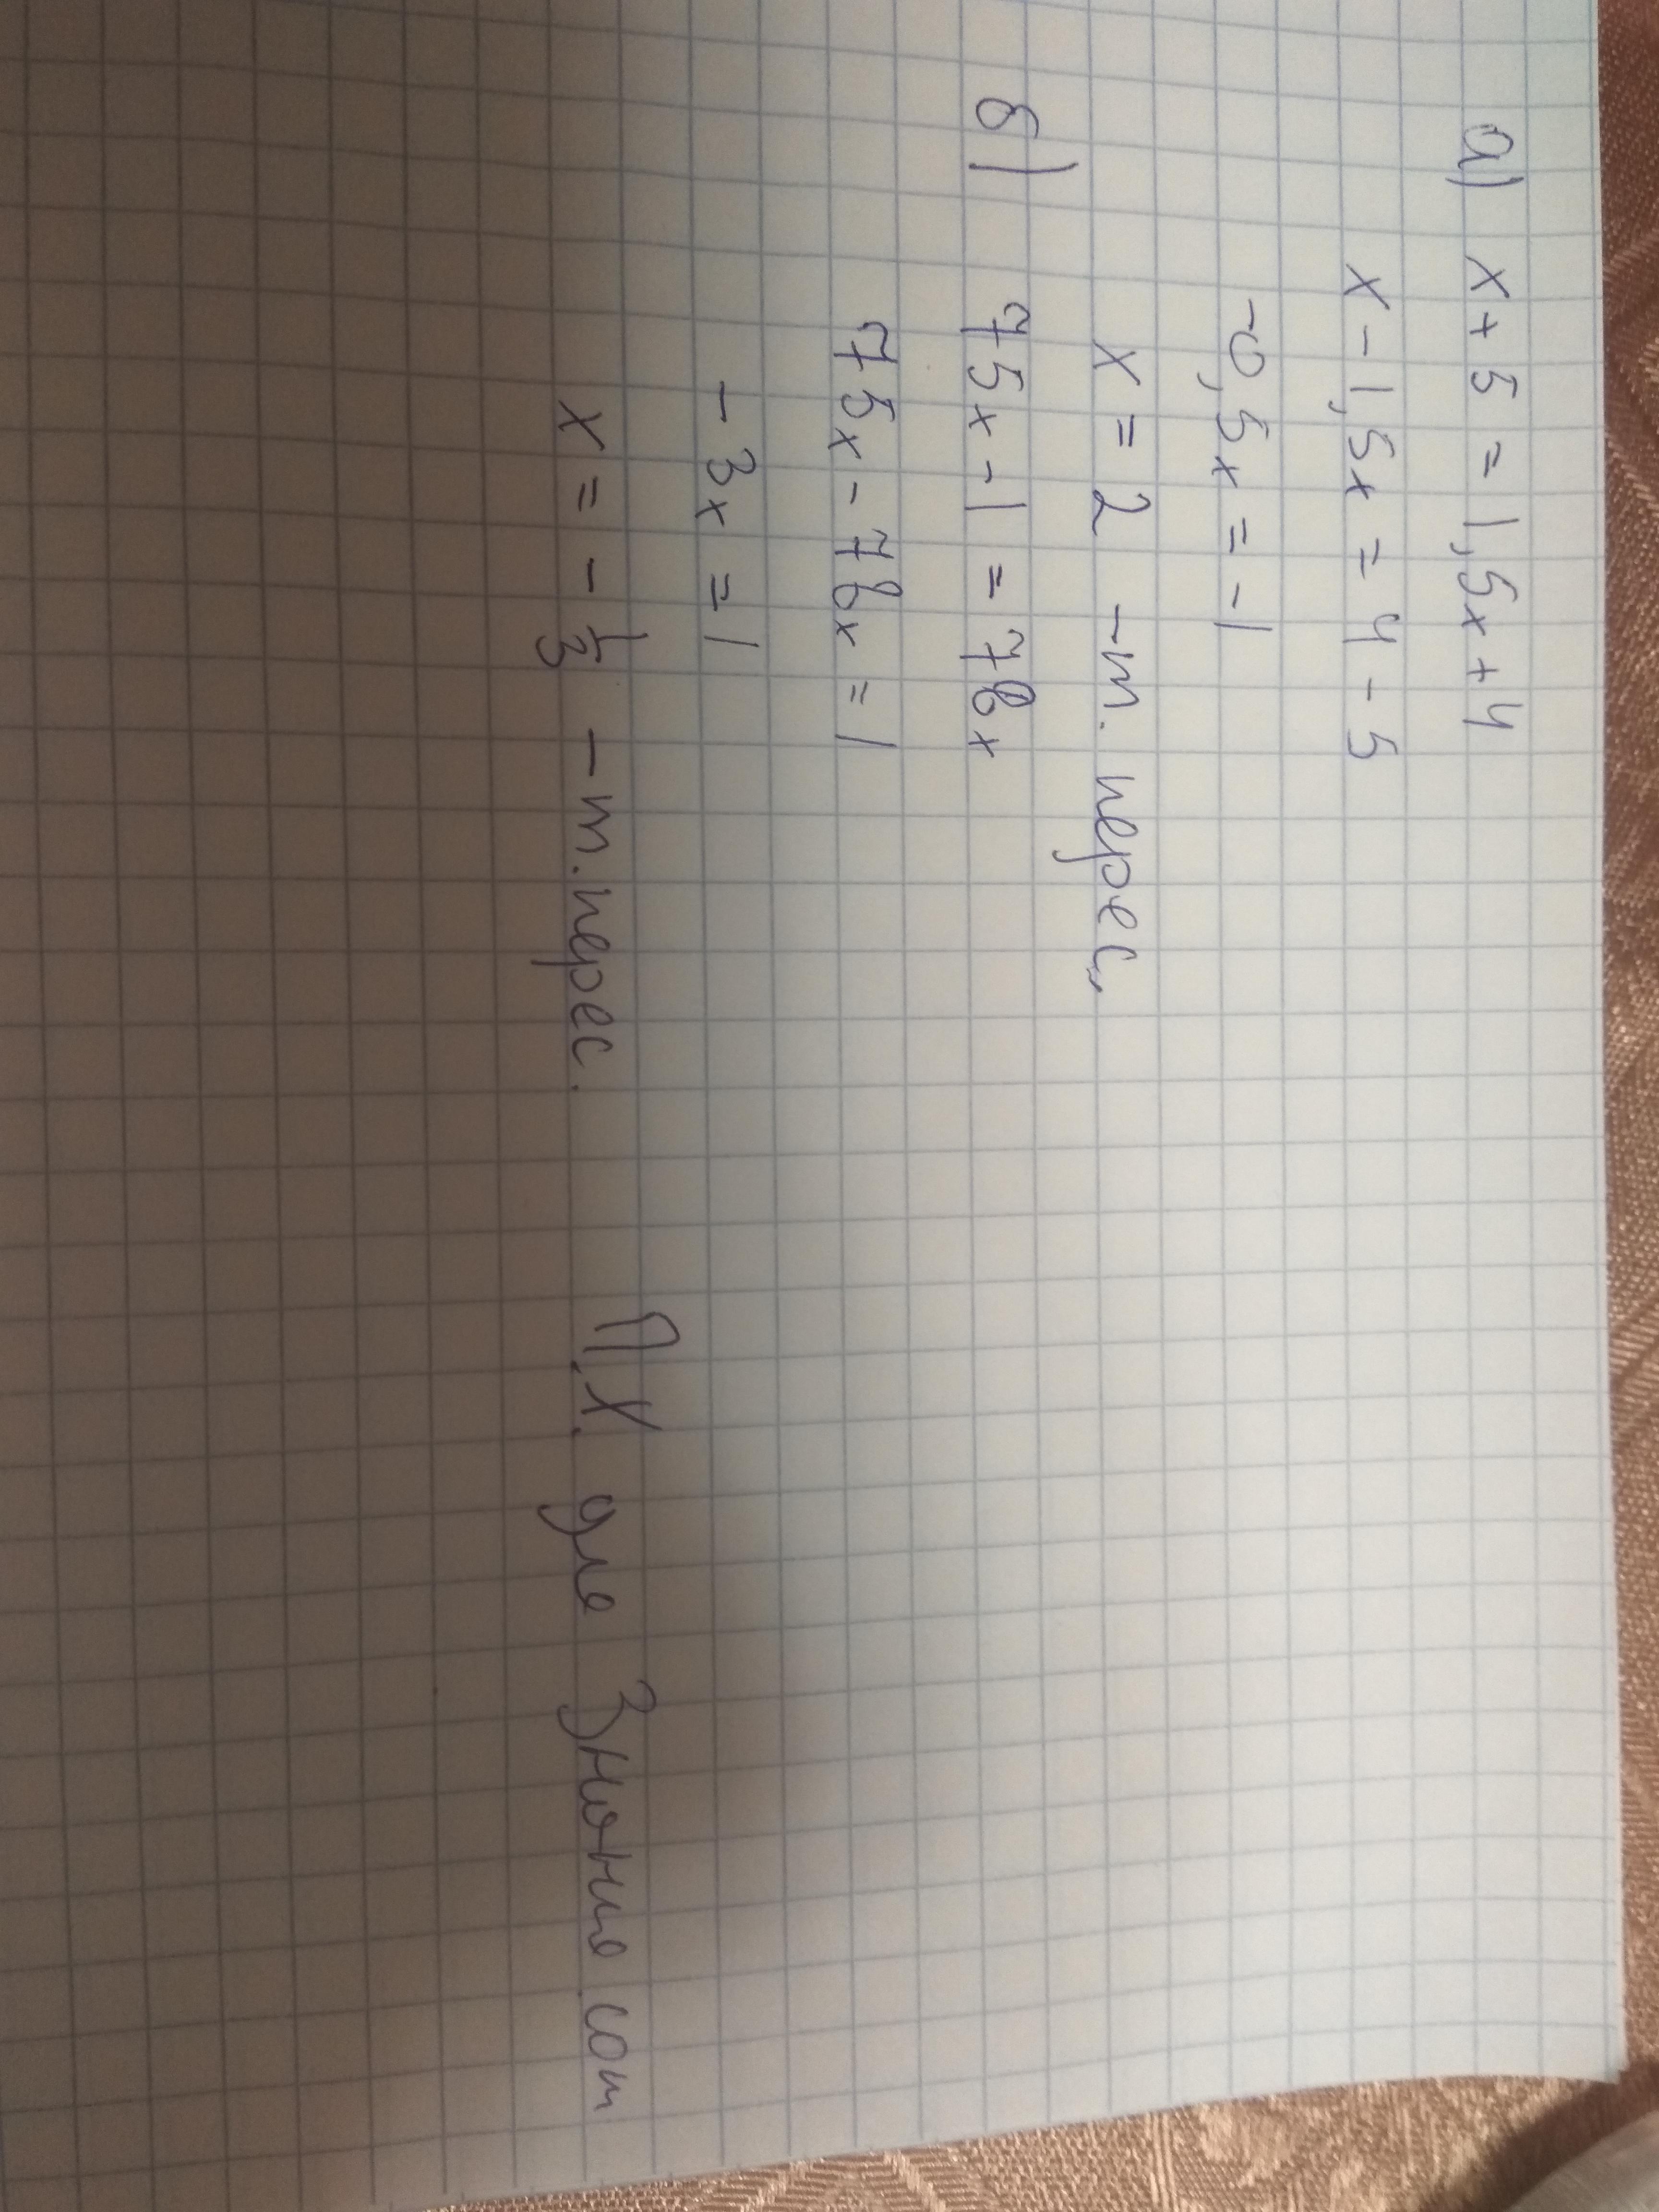 а) x + 5 = 1,5x + 4
x - 1,5x = 4 - 5
-0,5x = -1
x = 2 - т. перес.
б) 75x - 1 = 78x
75x - 78x = 1
- 3x = 1
x = - 1/3 - т. перес.
П.Х. для Знания.com